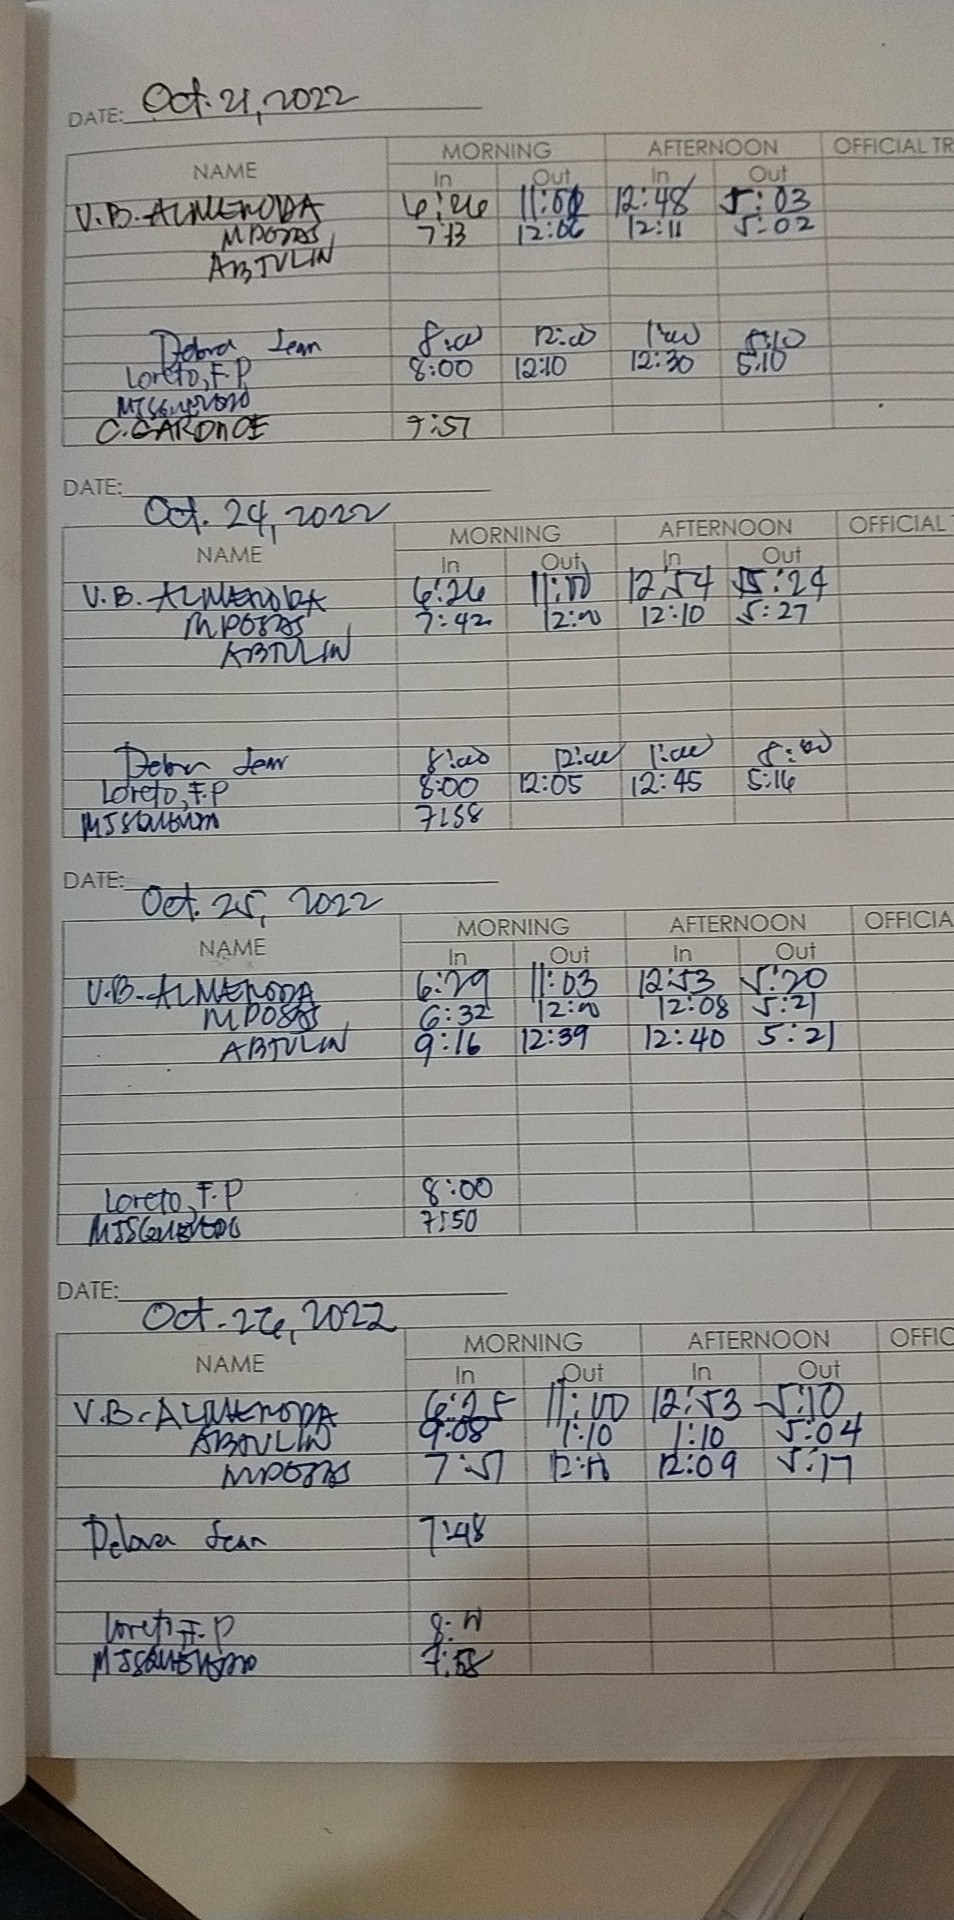 DATE: Oct. 21, 2022
NAME MORNING AFTERNOON OFFICIAL TR
In Out In Out
V.B. ALMENODA 6:26 12:48 5:03
7:13 12:06 12:11 5:02
ABTULIN
Debra Jean 8:00 12:00 1:00 5:10
Loreto, F.P 8:00 12:10 12:30 5:10
7:57
DATE: Oct. 24, 2022
NAME MORNING AFTERNOON OFFICIAL
In Out In Out
V.B. ALMENODA 6:26 11:00 12:54 5:24
7:42 12:00 12:10 5:27
ABTULIN
Debra Jean 8:00 12:00 1:00
Loreto, F.P 8:00 12:05 12:45 5:16
7:58
DATE: Oct. 25, 2022
NAME MORNING AFTERNOON OFFICIA
In Out In Out
V.B. ALMENODA 6:29 11:03 12:53 5:20
6:32 12:00 12:08 5:21
ABTULIN 9:16 12:39 12:40 5:21
Loreto, F.P 8:00
7:50
DATE: Oct. 26, 2022
NAME MORNING AFTERNOON OFFIC
In Out In Out
V.B. ALMENODA 6:25 11:00 12:53 5:10
ABTULIN 9:08 1:10 1:10 5:04
7:51 12:09 5:17
Jean 7:48
Loreto F.P
7:58